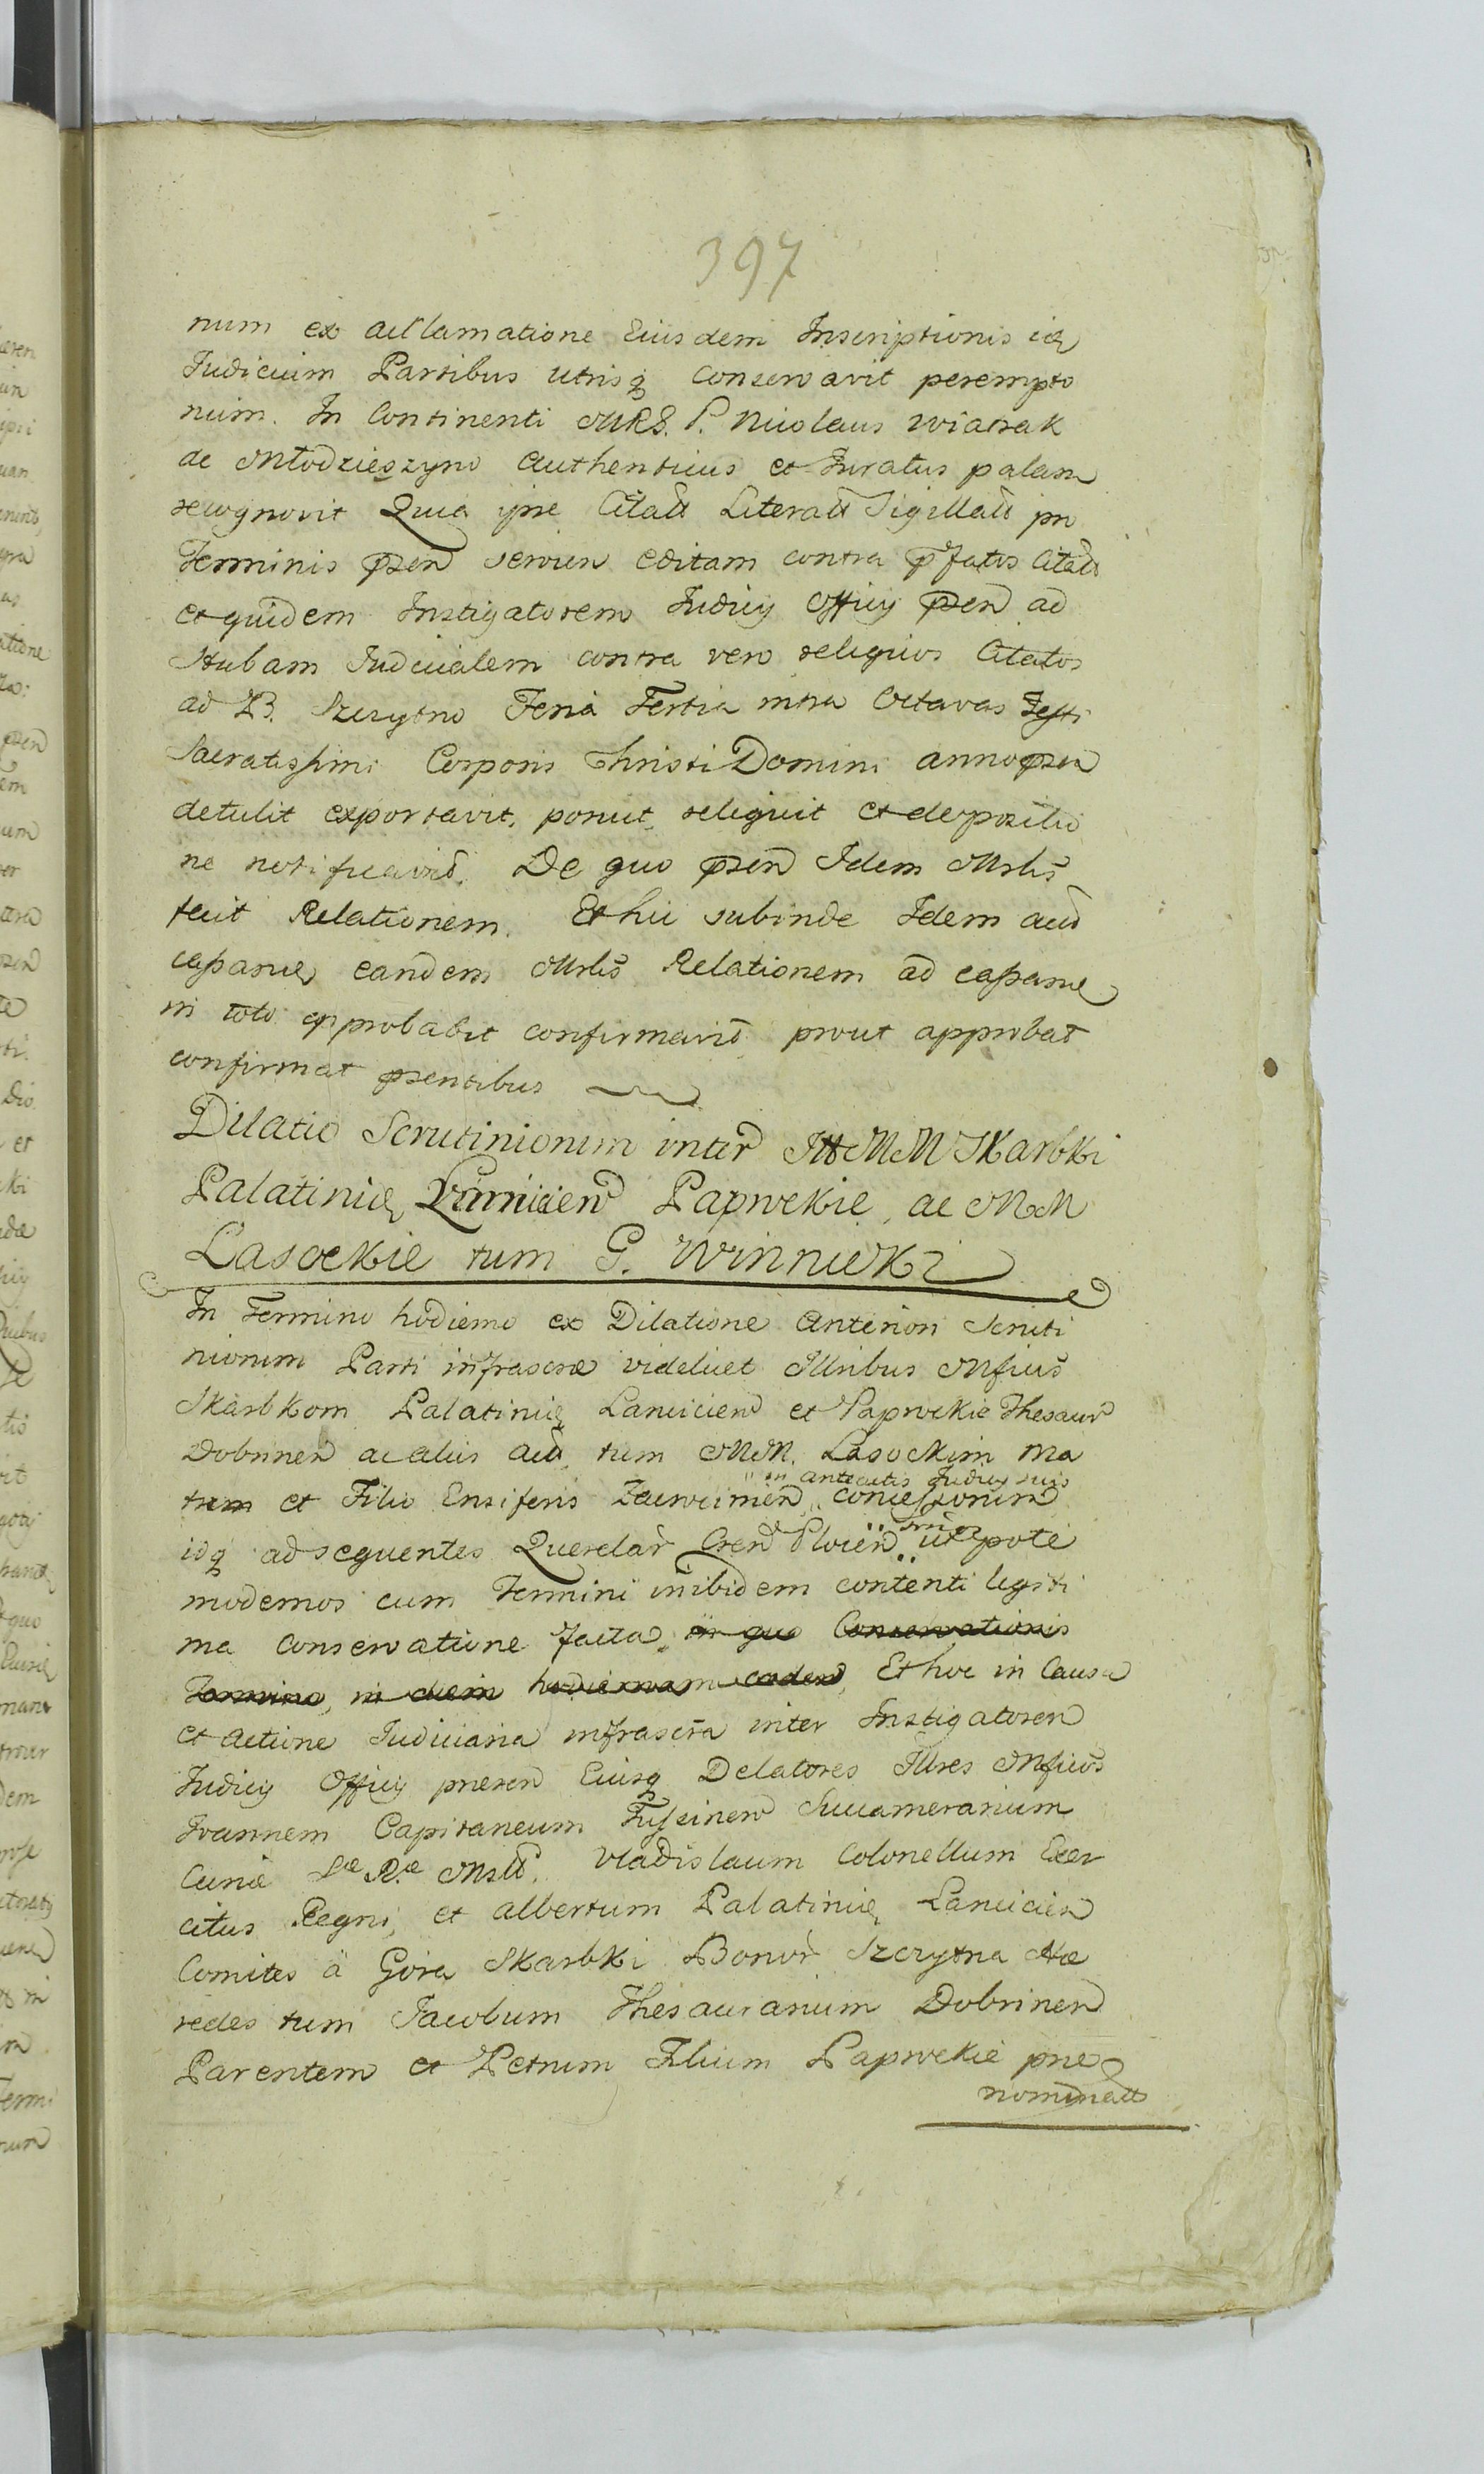 397
num ex acclamatione Eiusdem Inscriptionis idq
Judicium Partibus utrisq conservavit perempto
rium. In Continenti MRS. P. Nicolaus Wiatrak
de Młodzieszyno authenticus et Juratus palam
recognovit Quia ipse Citatt Literatt Sigillatt pro
Terminis psen servien editam contra pfatos Citatt
et quidem Instigatorem Judicy Officy psen ad
Stubam Judicialem contra vero reliquios Citatos
ad B. Szczytno Feria Tertia intra Octavas Festi
Sacratissimi Corporis Christi Domini anno psen
detulit exportavit, posuit, reliquit et depositio
ne notificavit. De quo psen Idem Mrlis
fecit Relationem. Et hic subinde Idem
eandem Mrlis Relationem ad
in toto approbabit confirmavit prout approbat
confirmat psentibus
Dilatio Scrutiniorum inter Ill MM Skarbki
Palatinid Lanicien Paprockie, ac MM
Lasockie tum G. Winnicki
In Termino hodierno ex Dilatione anteriori Scruti
niorum Parti infrascrae videlicet Illribus Mficis
Skarbkom Palatinid Lancicien et Paprockie Thesaur
Dobrinen ac aliis Act, tum MM. Lasockim Ma
tri et Filio Ensiferis Zacwcimien, concessorum
in antelatis Judicy suis
idq ad sequentes Querelar Cren Plocien utpote
modernos cum Termini inibidem contenti legiti
ma conservatione facta, in quo Conservationis
Termino, in diem hodiernam caden, Et hoc in Causa
et actione Judiciaria infrascra inter Instigatorem
Judicy Officy presen Eiusq Delatores Illres Mficos
Joannem Capitaneum Succamerarium
Curiae Sae Rae Mstt. Vladislaum Colonellum Exer
citus Regni, et Albertum Palatinid Lancicien
Comites à Gora Skarbki Bonor Szczytna Hae
redes tum Jacobum Thesaurarium Dobrinen
Parentem et Petrum Filium Paprockie pre
nominatt